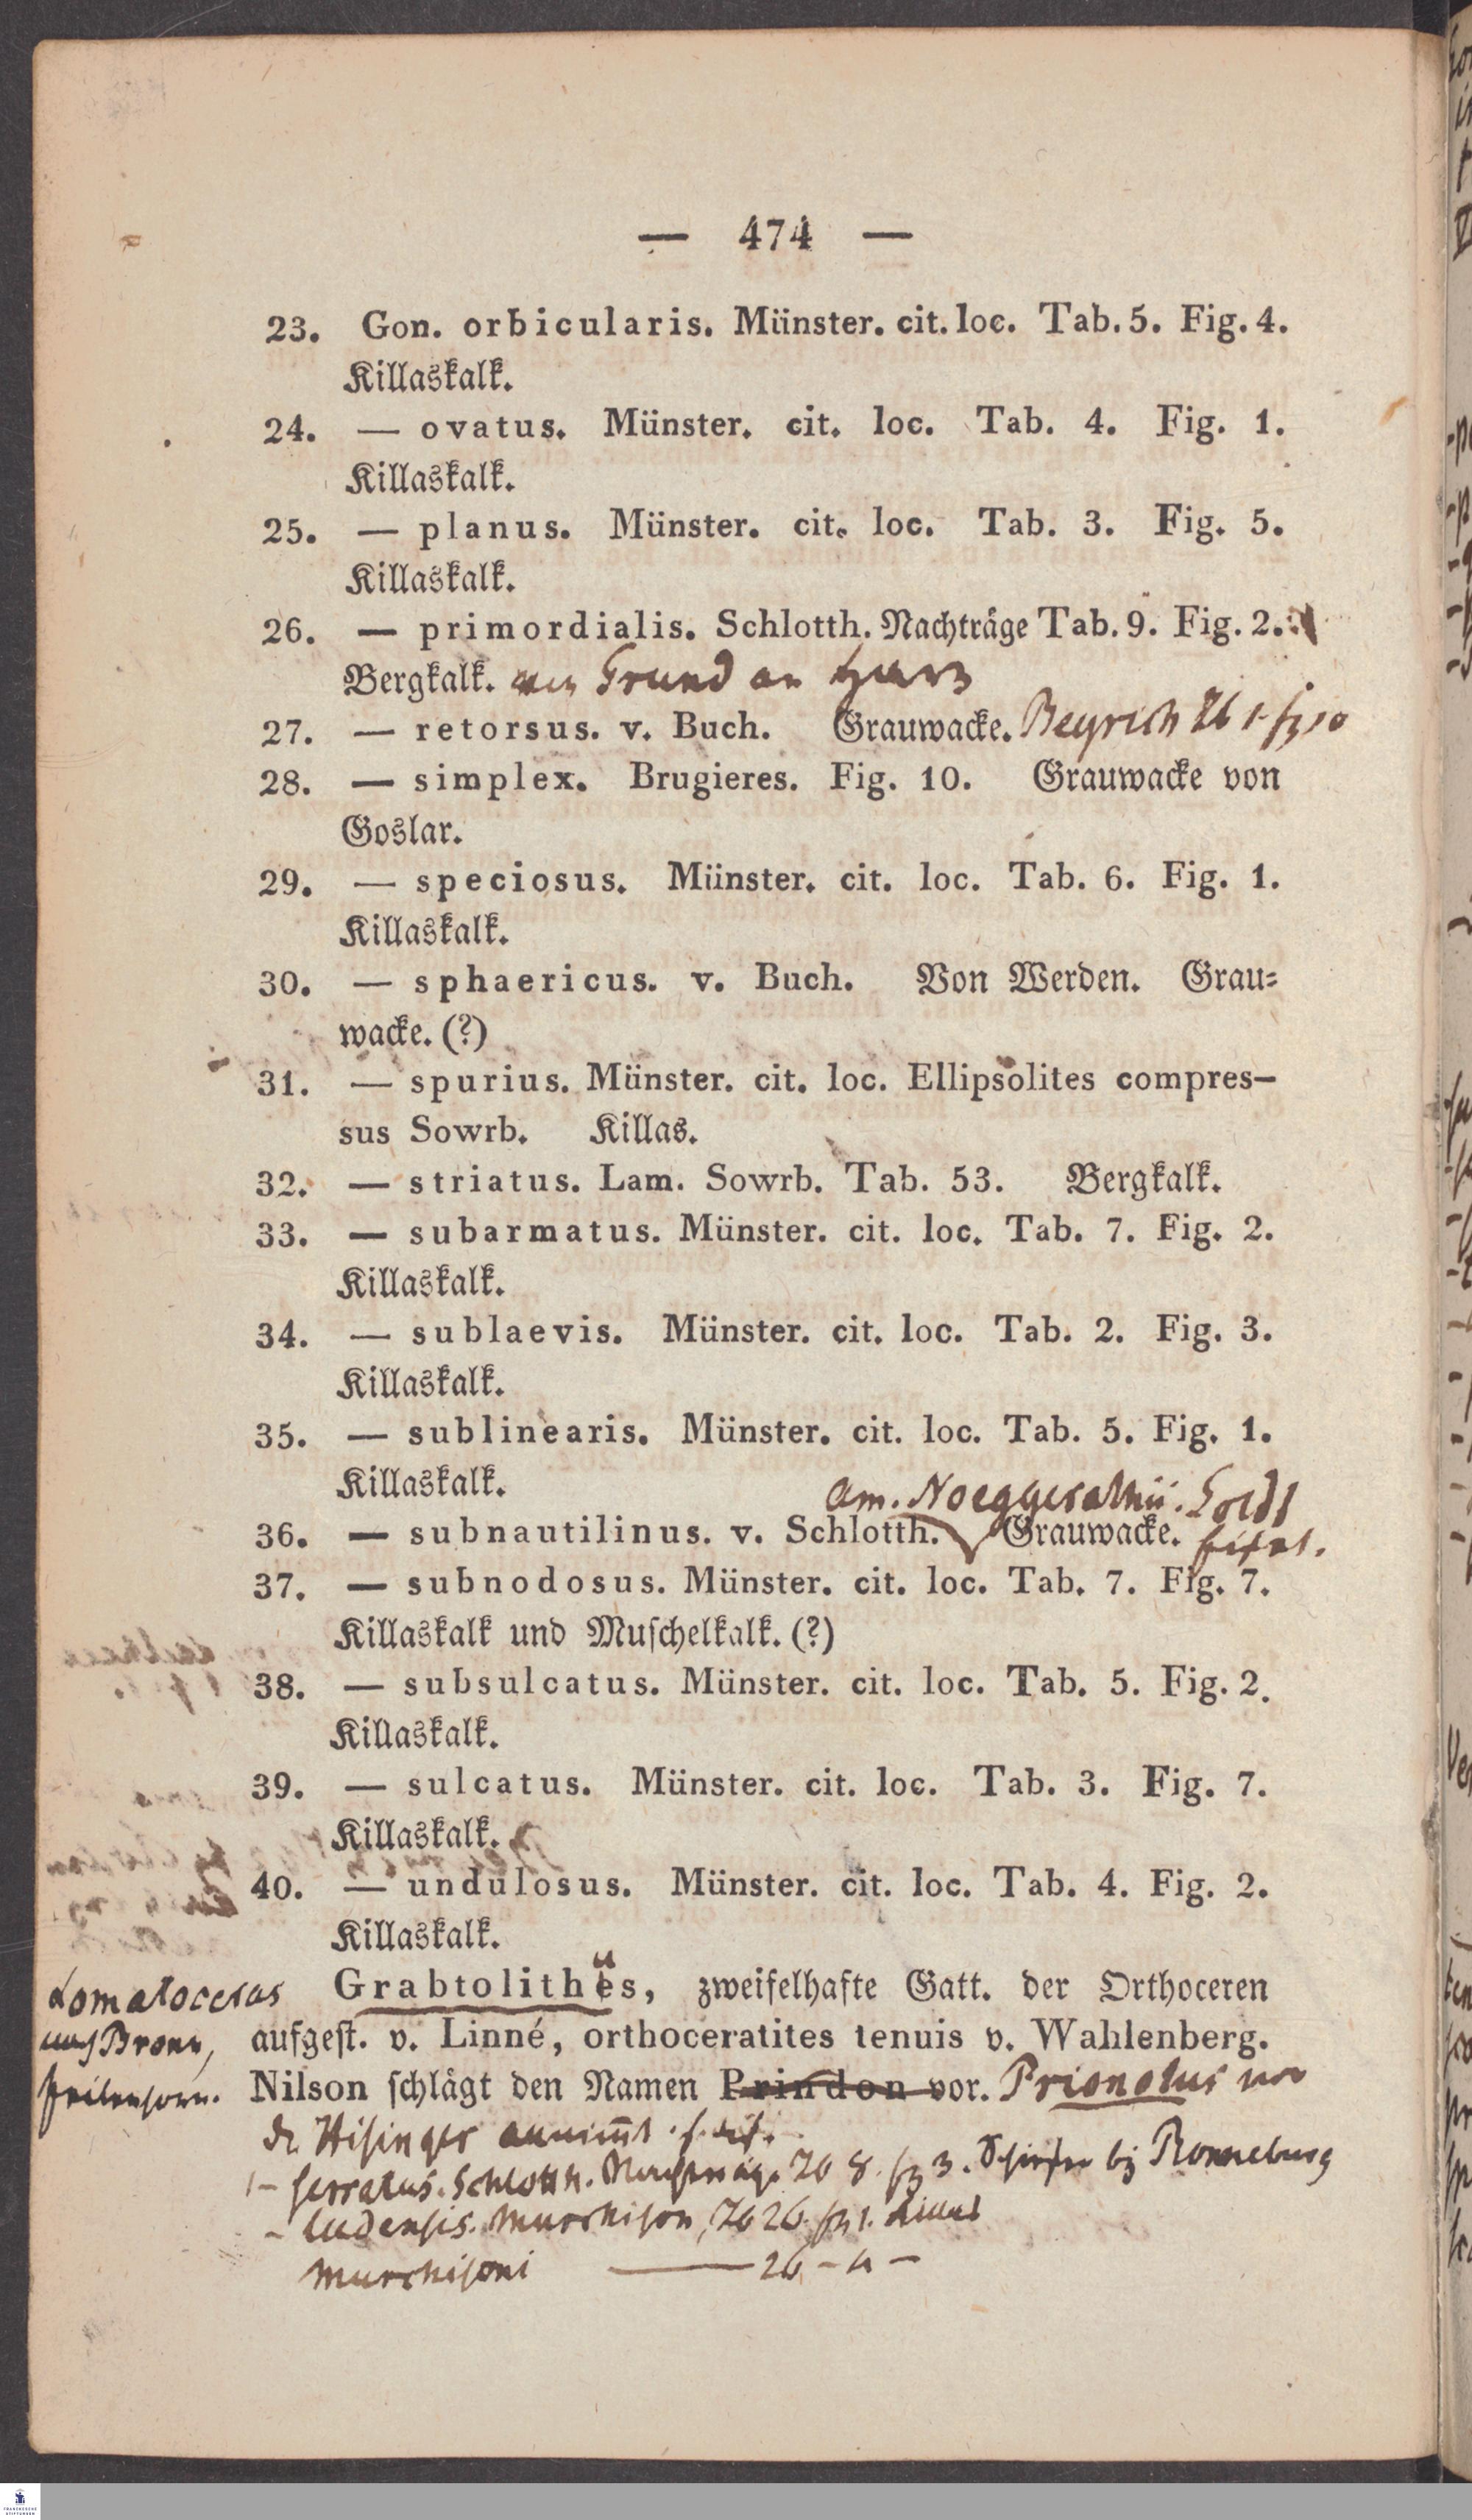 — 474 —
23. Gon. orbicularis. Münster. cit. loc. Tab. 5. Fig. 4.
Killaskalk.
24. — ovatus. Münster. cit. loc. Tab. 4. Fig. 1.
Killaskalk.
25. — planus. Münster. cit. loc. Tab. 3. Fig. 5.
Killaskalk.
26. — primordialis. Schlotth. Nachträge Tab. 9. Fig. 2.
Bergkalk. Grund an Harz
27. — retorsus. v. Buch. Grauwacke. Beyrich Tb 1. fig 10
28. — simplex. Brugieres. Fig. 10. Grauwacke von
Goslar.
29. — speciosus. Münster. cit. loc. Tab. 6. Fig. 1.
Killaskalk.
30. — sphaericus. v. Buch. Von Werden. Grau-
wacke. (?)
31. — spurius. Münster. cit. loc. Ellipsolites compres-
sus Sowrb. Killas.
32. — striatus. Lam. Sowrb. Tab. 53. Bergkalk.
33. — subarmatus. Münster. cit. loc. Tab. 7. Fig. 2.
Killaskalk.
34. — sublaevis. Münster. cit. loc. Tab. 2. Fig. 3.
Killaskalk.
35. — sublinearis. Münster. cit. loc. Tab. 5. Fig. 1.
Killaskalk.
am. Noeggerathii. Goldf
36. — subnautilinus. v. Schlotth. Grauwacke. Eifel.
37. — subnodosus. Münster. cit. loc. Tab. 7. Fig. 7.
Killaskalk und Muschelkalk. (?)
38. — subsulcatus. Münster. cit. loc. Tab. 5. Fig. 2.
Killaskalk.
39. — sulcatus. Münster. cit. loc. Tab. 3. Fig. 7.
Killaskalk.
40. — undulosus. Münster. cit. loc. Tab. 4. Fig. 2.
Killaskalk.
Lomatoceras
nach Bronn,
Grabtolithes, zweifelhafte Gatt. der Orthoceren
aufgest. v. Linné, orthoceratites tenuis v. Wahlenberg.
Nilson schlägt den Namen Prindon vor. Prionotus
Hisinger annimt
1– serratus. Schlotth. Nachträge Tb 8. fig 3. Schiefer bei Ronneburg
– ludensis. Murchison, Tb 26. fig 1.
Murchisoni — 26 – 4 –